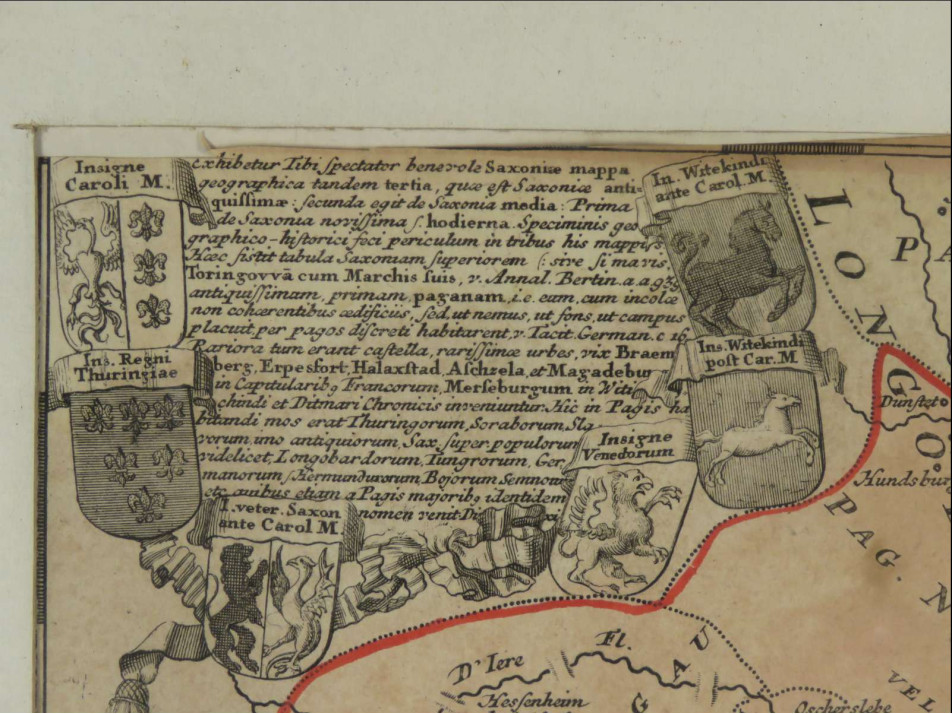 Insigne
Caroli M.
exhibetur Tibi spectator benevole Saxoniæ mappa
geographica tandem tertia, quæ est Saxoniæ anti-
quissimæ: secunda egit de Saxonia media: Prima
de Saxonia novissima s. hodierna. Speciminis geo
graphico-historici foci periculum in tribus his mappis
Hæc sistit tabula Saxoniam superiorem (: sive si mavis,
Toringovvā cum Marchis suis, v. Annal. Bertin. a.
antiquissimam, primam, paganam, i.e. eam, cum incolæ
non cohærentibus ædificiis, sed, ut nemus, ut fons, ut campus
placuit, per pagos discreti habitarent, v. Tacit. German. c 16
Rariora tum erant castella, rarissimæ urbes, vix Braem
berg, Erpesfort, Halaxstad, Aschzela, et Magadebur
in Capitularibꝯ Francorum, Merseburgum in Witi
chindi et Ditmari Chronicis inveniuntur. Hic in Pagis ha
bitandi mos erat Thuringorum, Soraborum, Sla
vorum, imo antiquiorum, Sax. super. populorum
videlicet, Longobardorum, Tungrorum, Ger
manorum s. Hermundurorum, Bojorum Semnon
etc. quibus etiam a Pagis majoribꝯ identidem
nomen venit.
In. Witekindi
ante Carol. M.
Ins. Witekindi
post Car. M
Insigne
Venedorum
Ins. Regni
Thuringiae
I. veter. Saxon
ante Carol M.
LONGO
P A
Dunstet
Hundsbur
PAG. N
D' Iere Fl.
GAU
Hessenheim
Oscherslebe
VEL